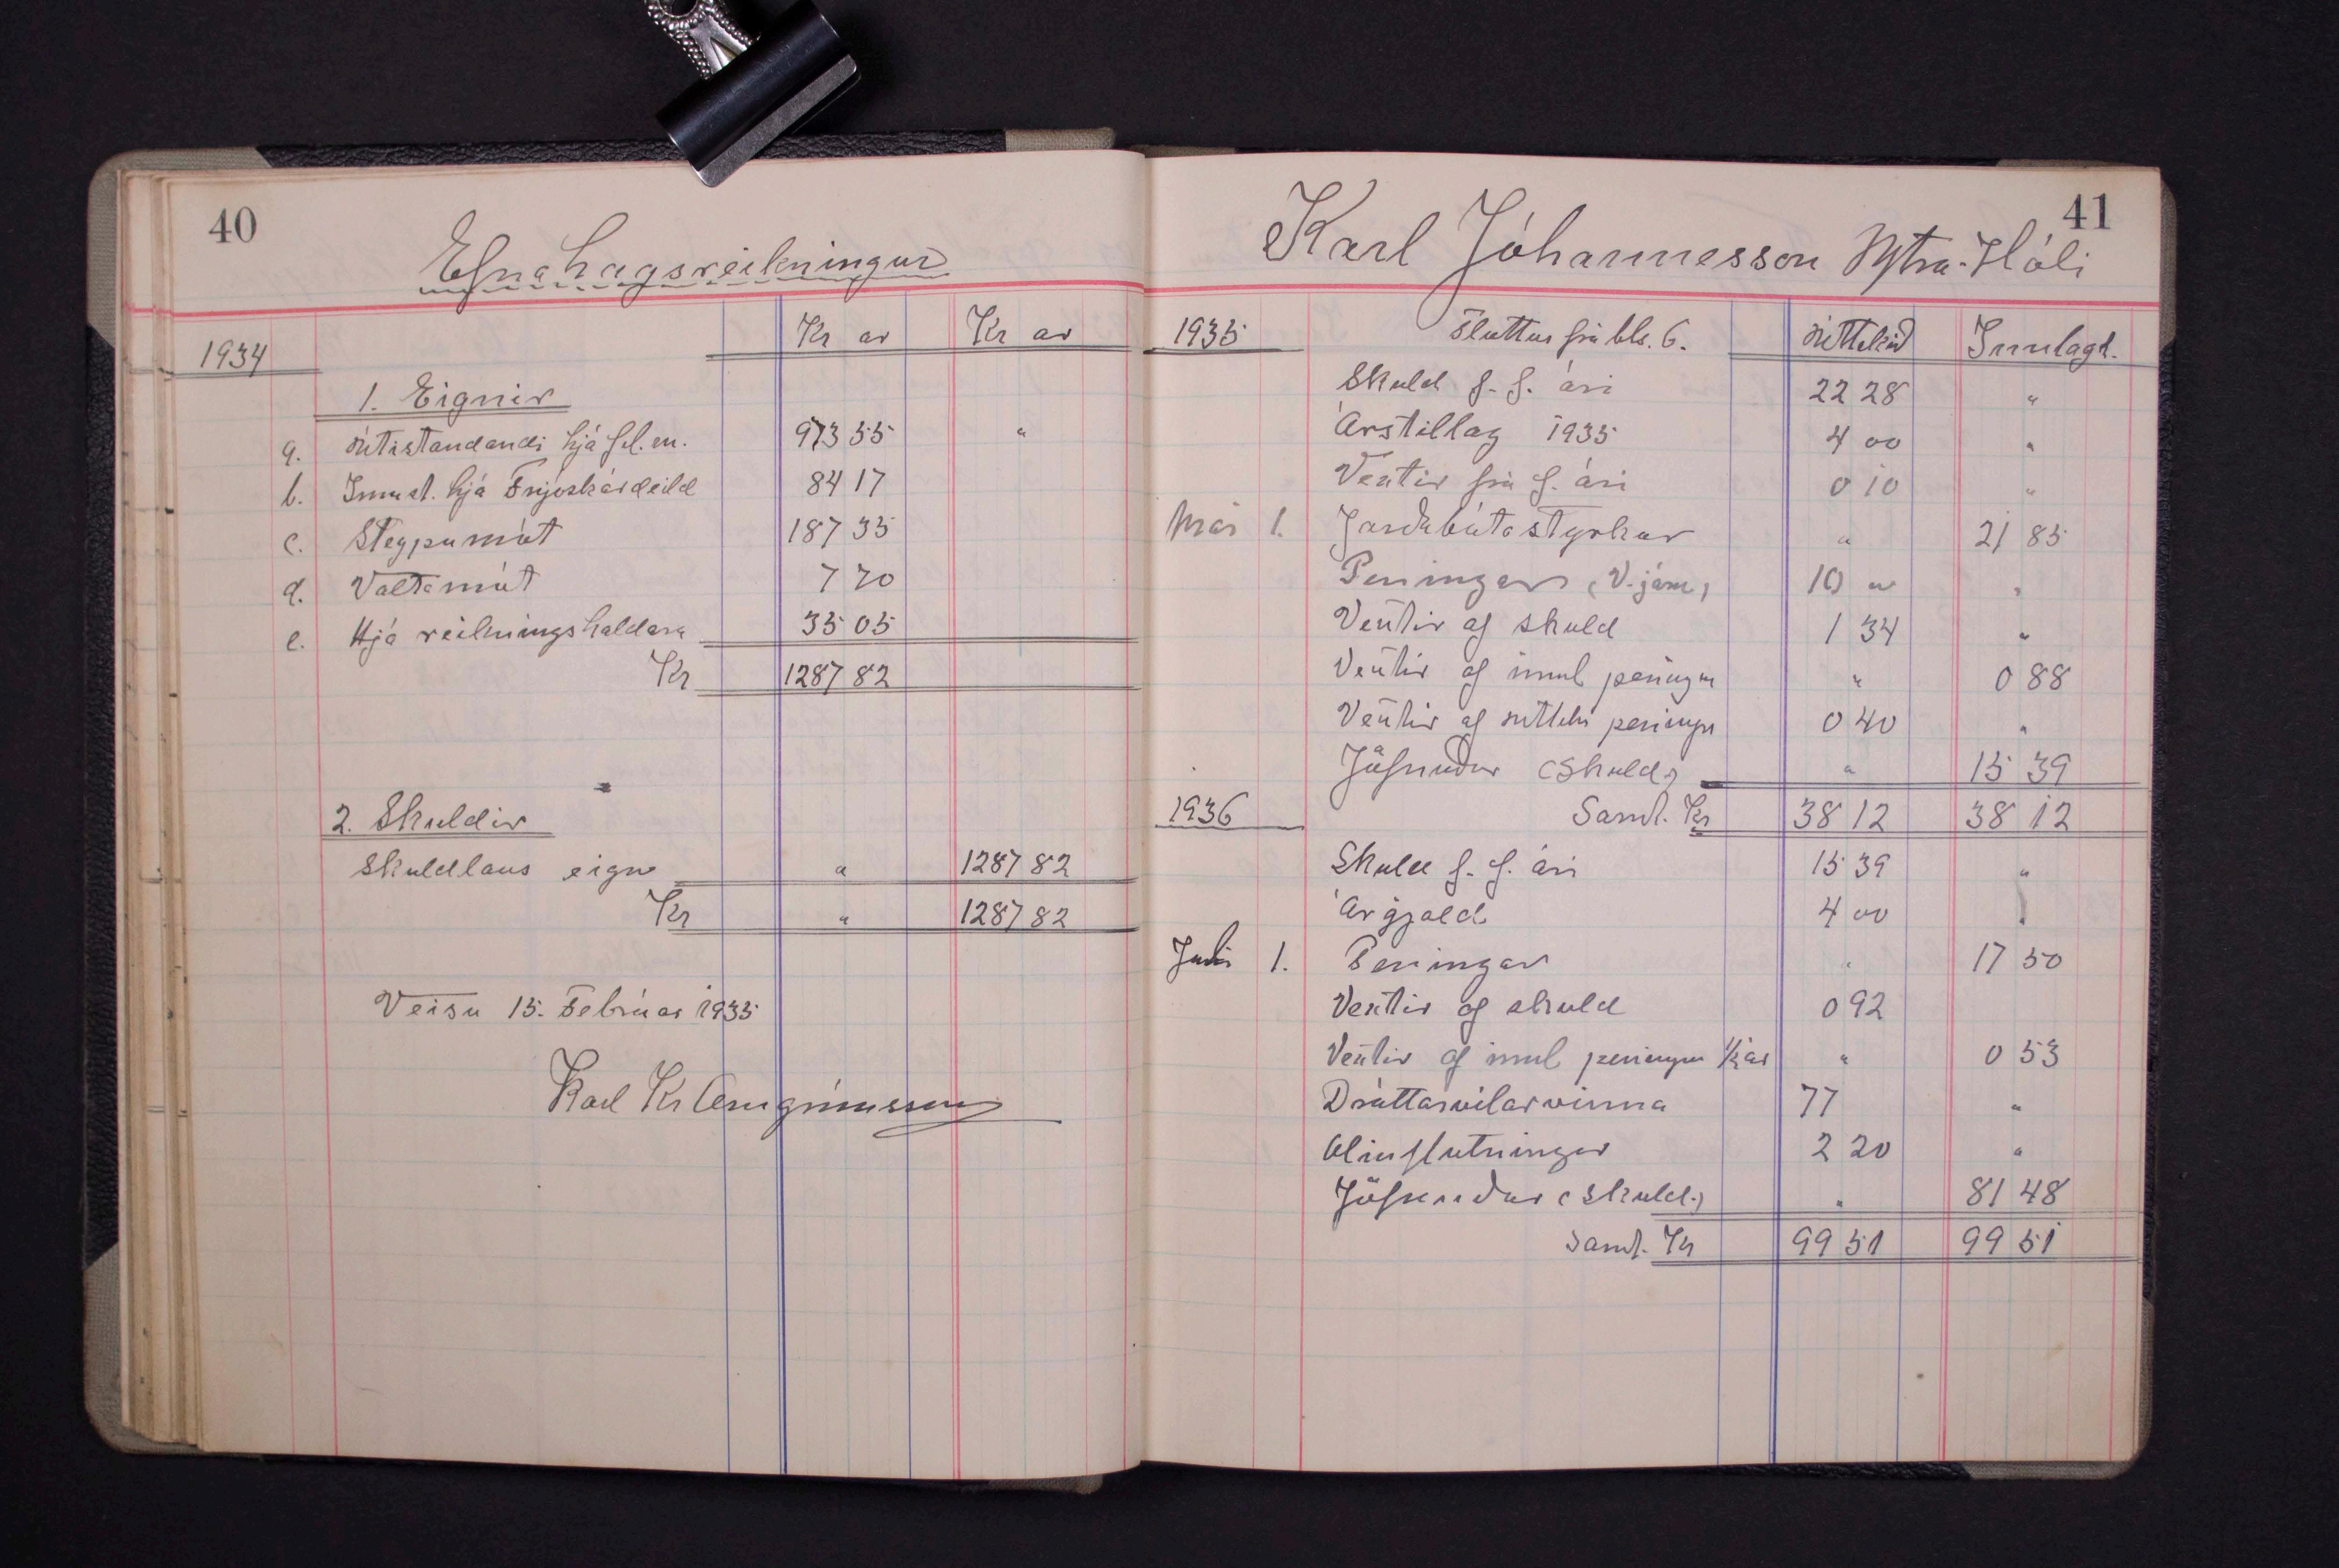 40
Efnahagsreikningur
Kr ar Kr ar
1934
1. Eignir
a. útistandandi hjá fél.m. 973 55 "
b. Innst. hjá Fnjóskárdeild 84 17
c. Steypumót 187 35
d. Valtamót 7 70
e. Hjá reikningshaldara 35 05
Kr 1287 82
2. Skuldir
Skuldlaus eign " 1287 82
Kr " 1287 82
Veisu 15. Febrúar 1935
Karl Kr Arngrímsson
41
Karl Jóhannesson Ytra-Hóli
1935 Fluttur frá bls. 6. úttekið Innlagt.
Skuld f. f. ári 22 28 "
Árstillag 1935 4 00 "
Vextir frá f. ári 0 10 "
Mar 1. Jarðabótastyrkur " 21 85
Peningar (V.járn) 10 " "
Vextir af skuld 1 34 "
Vextir af innl peningum " 0 88
Vextir af úttekn peningum 0 40 "
Jöfnuður (Skuld) " 15 39
1936 Saml. Kr 38 12 38 12
Skuld f. f. ári 15 39 "
Árgjald 4 00 "
Juli 1. Peningar " 17 50
Vextir af skuld 0 92
Vextir af innl peningum 1/2 ár " 0 53
Dráttarvélarvinna 77 "
Olíuflutningur 2 20 "
Jöfnuður (Skuld.) " 81 48
Saml. Kr 99 51 99 51